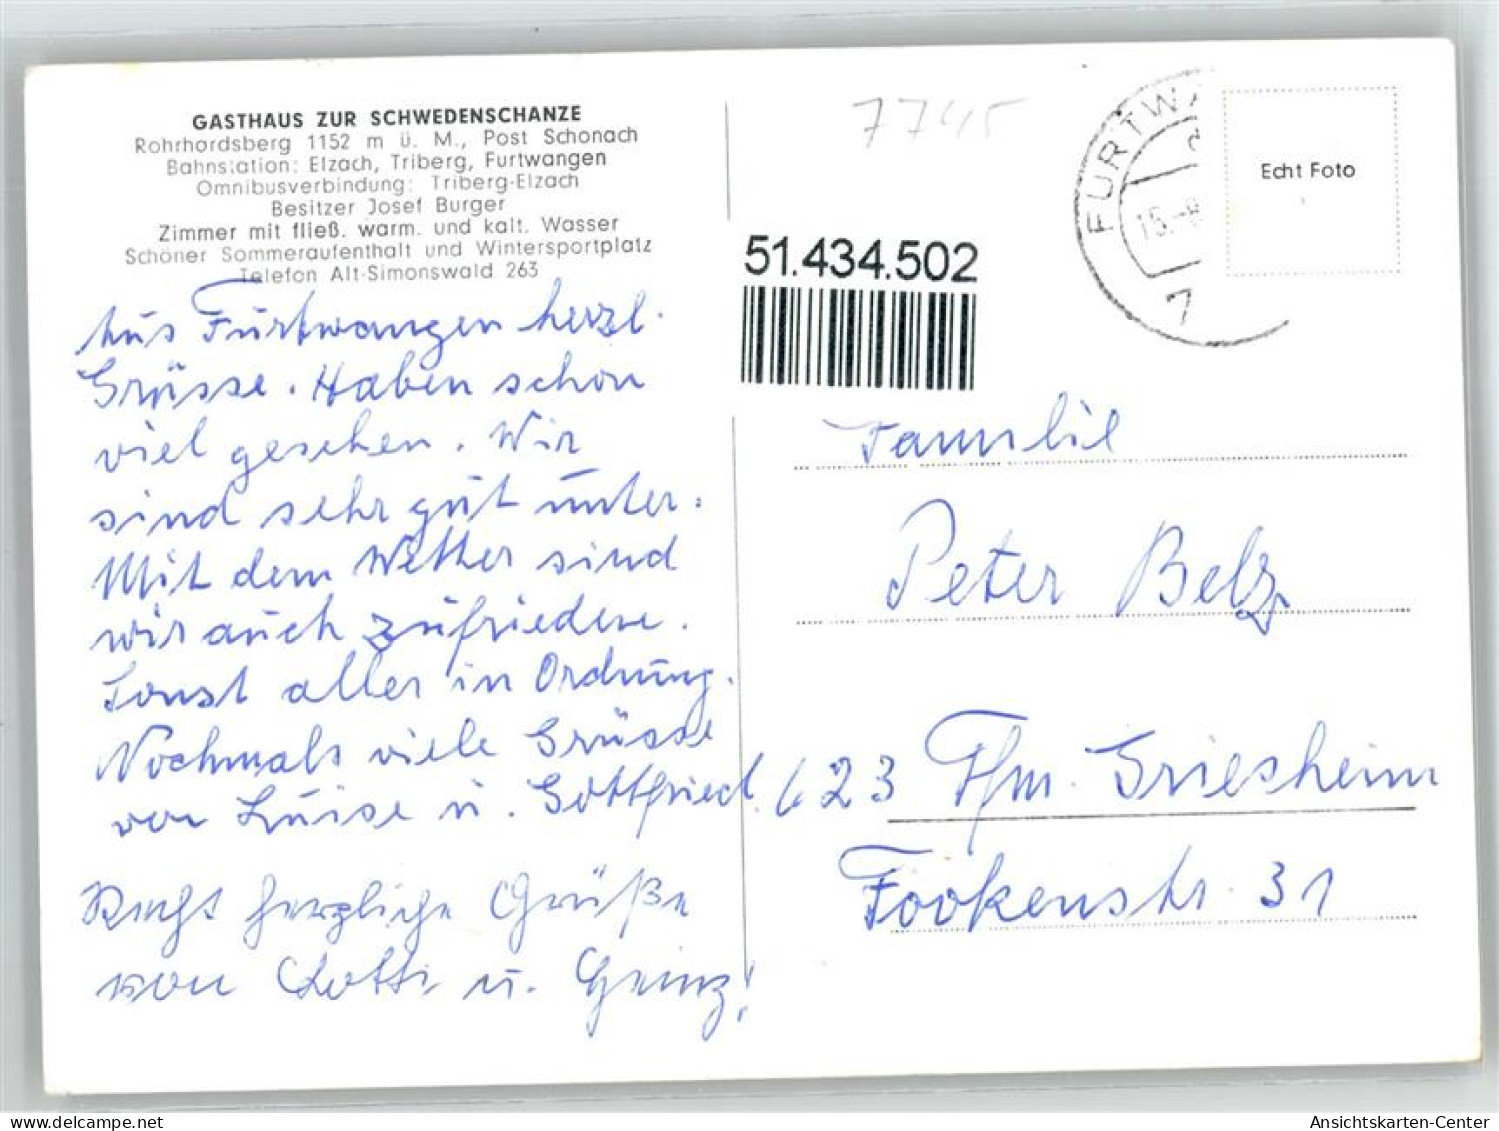 GASTHAUS ZUR SCHWEDENSCHANZE
Rohrhardsberg 1152 m ü. M., Post Schonach
Bahnstation: Elzach, Triberg, Furtwangen
Omnibusverbindung: Triberg-Elzach
Besitzer Josef Burger
Zimmer mit fließ. warm. und kalt. Wasser
Schöner Sommeraufenthalt und Wintersportplatz
Telefon Alt-Simonswald 263
Aus Furtwangen herzl.
Grüsse. Haben schon
viel gesehen. Wir
sind sehr gut unter.
Mit dem Wetter sind
wir auch zufrieden.
Sonst alles in Ordnung.
Nochmals viele Grüsse
von Luise u. Gottfried.
Recht herzliche Grüße
von Lotti u. Heinz!
7745
FURTWA
15.-8
7
Echt Foto
51.434.502
Familie
Peter Belz
623 Ffm. Griesheim
Fookenstr. 31
delcampe.net
Ansichtskarten-Center